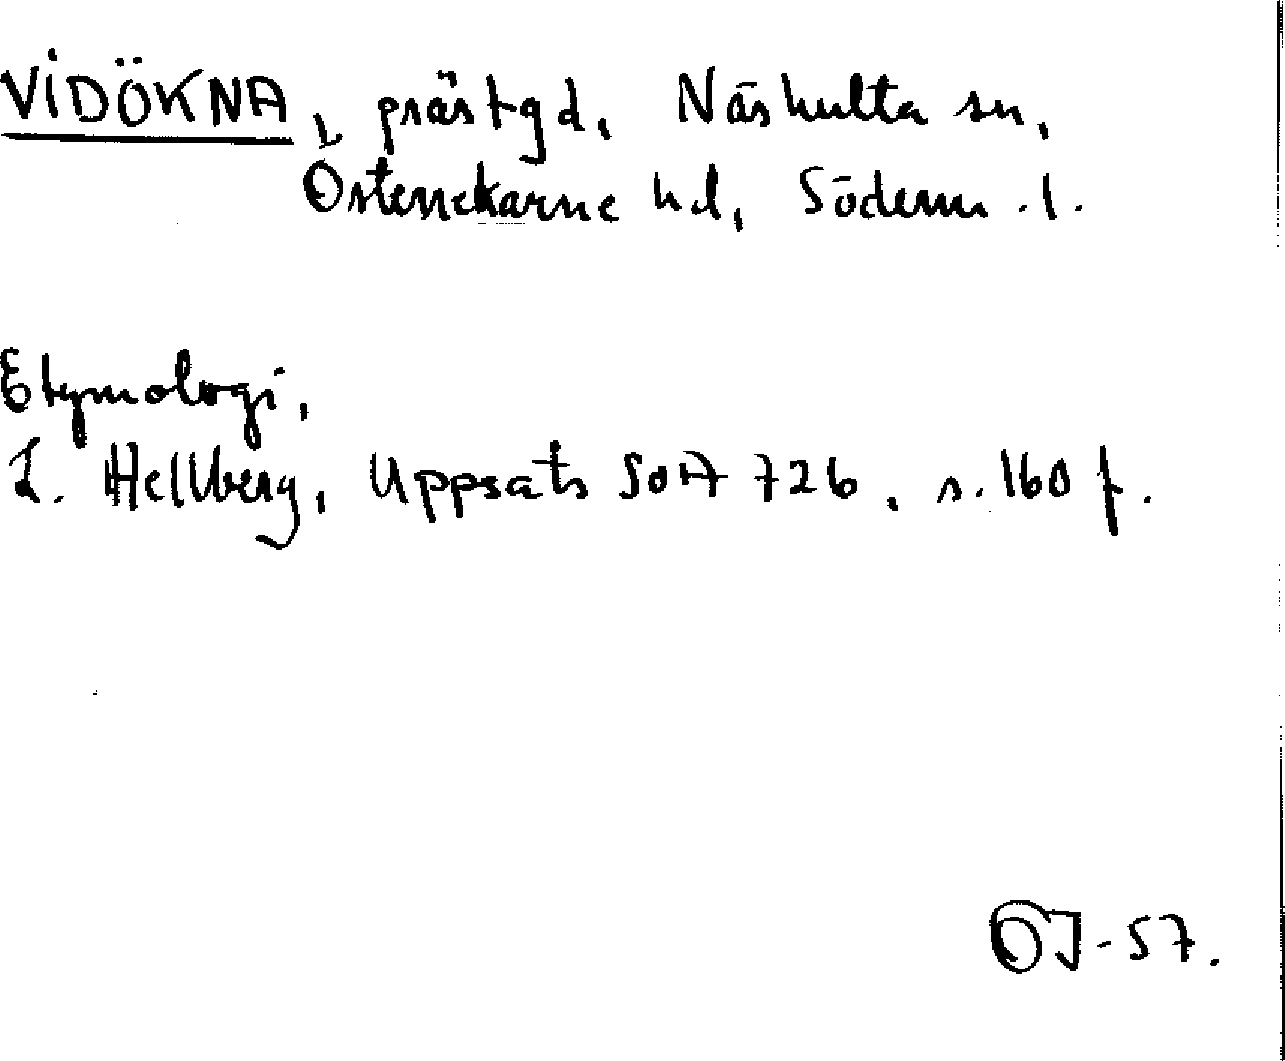 VIDÖKNA, prästgd, Näshulta sn,
Österrekarne hd, Söderm. l.
Etymologi.
L. Hellberg, Uppsats SOA 726, s. 160 f.
OJ-57.